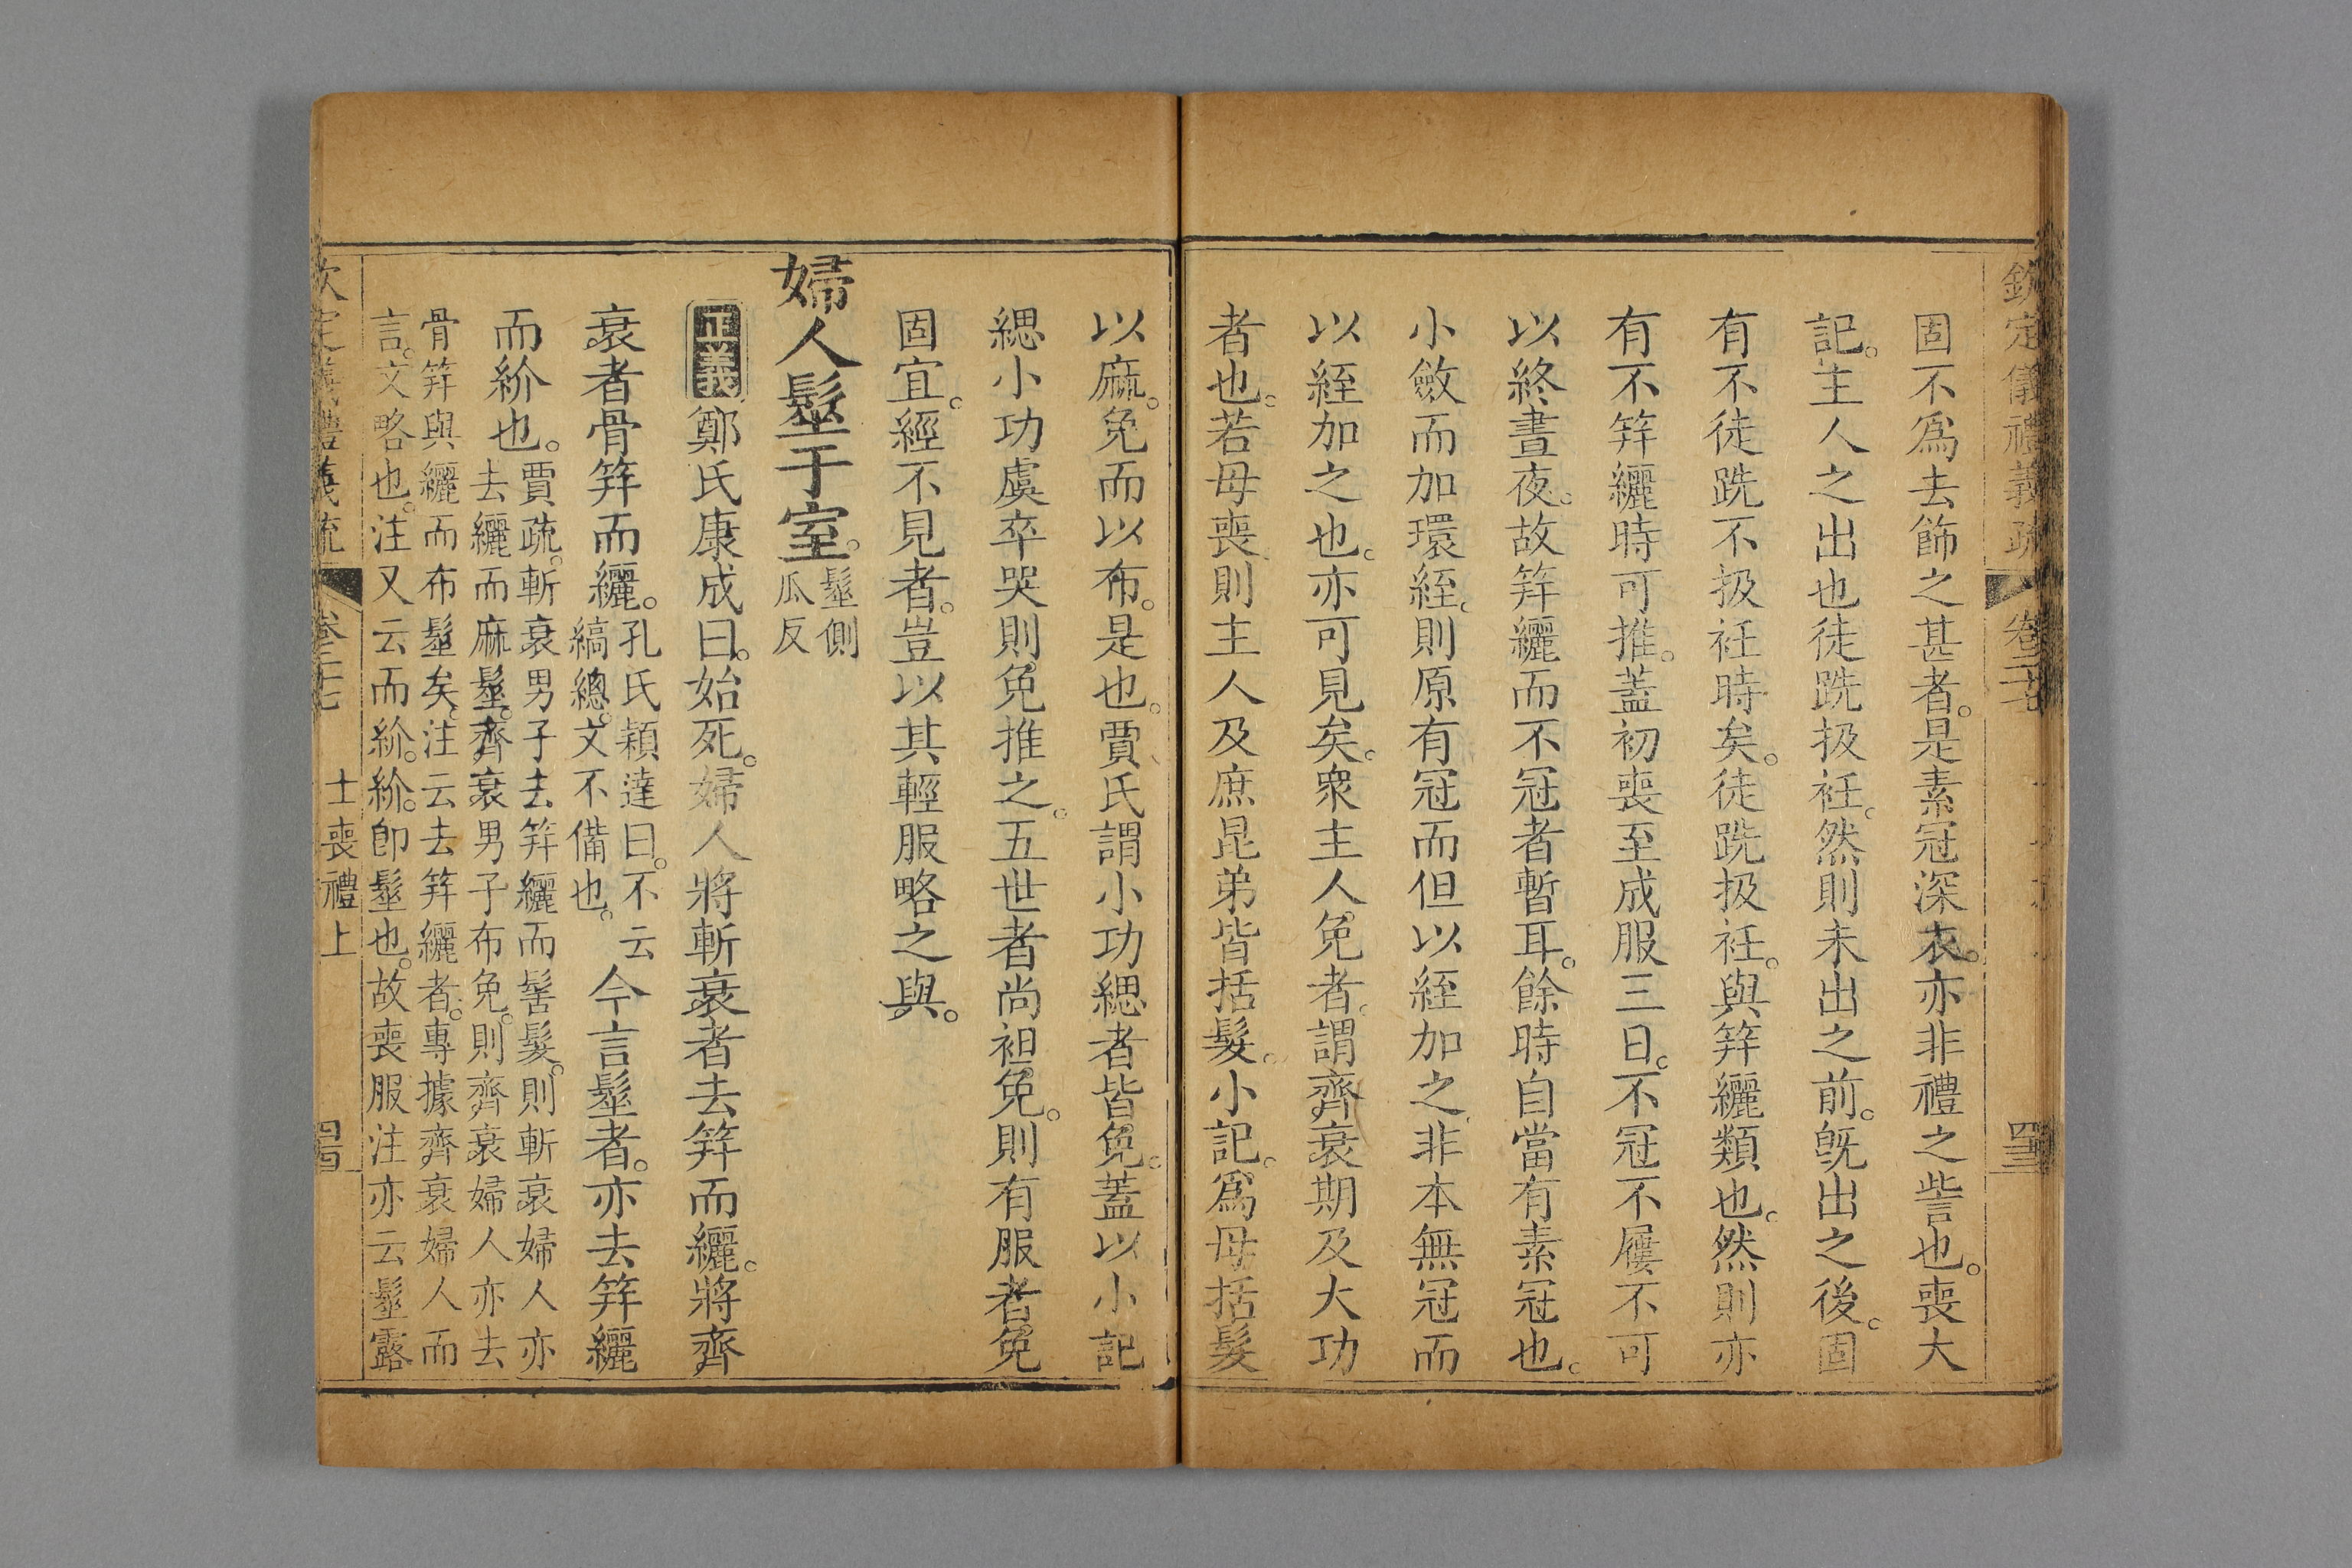 欽定儀禮義疏　卷二十七
固不爲去飾之甚者。是素冠深衣。亦非禮之訾也。喪大
記。主人之出也徒跣扱衽。然則未出之前。旣出之後。固
有不徒跣不扱衽時矣。徒跣扱衽。與笄纚類也。然則亦
有不笄纚時可推。蓋初喪至成服三日。不冠不屨不可
以終晝夜。故笄纚而不冠者暫耳。餘時自當有素冠也。
小斂而加環絰。則原有冠而但以絰加之、非本無冠而
以絰加之也。亦可見矣。衆主人免者。謂齊衰期及大功
者也。若母喪、則主人及庶昆弟皆括髮。小記。爲母括髮
以麻。免而以布。是也。賈氏謂小功緦者皆免。蓋以小記
緦小功虞卒哭則免推之。五世者尚袒免。則有服者免
固宜。經不見者。豈以其輕服略之與。
婦人髽于室。髽側
瓜反
正義鄭氏康成曰。始死。婦人將斬衰者去笄而纚。將齊
衰者骨笄而纚。孔氏穎達曰。不云
縞總。文不備也。今言髽者。亦去笄纚
而紒也。賈疏。斬衰男子去笄纚而髺髮。則斬衰婦人亦
去纚而麻髽。齊衰男子布免。則齊衰婦人亦去
骨笄與纚而布髽矣。注云去笄纚者。專據齊衰婦人而
言。文略也。注又云而紒。紒。卽髽也。故喪服注亦云髽露
士喪禮上